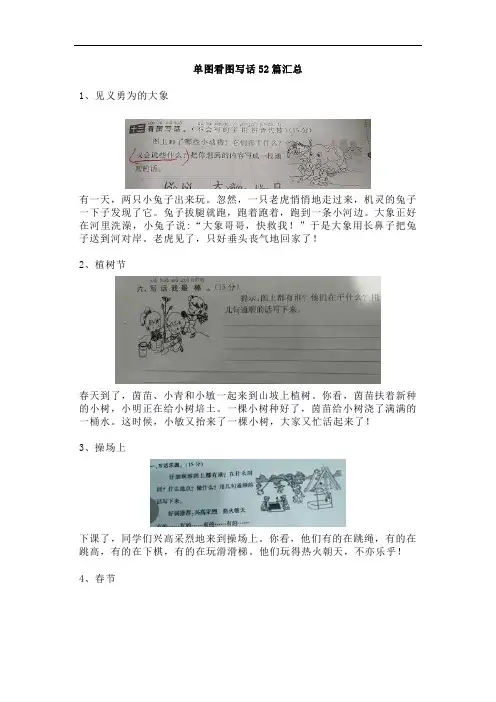 单图看图写话52篇汇总
1、见义勇为的大象
看图写话。(不会写的字用拼音代替)(15分)
图上画了哪些小动物?它们在干什么?
又会说些什么?把你想到的内容写成一段通
顺的话。
有一天，两只小兔子出来玩。忽然，一只老虎悄悄地走过来，机灵的兔子
一下子发现了它。兔子拔腿就跑，跑着跑着，跑到一条小河边。大象正好
在河里洗澡，小兔子说:“大象哥哥，快救我！”于是大象用长鼻子把兔
子送到河对岸。老虎见了，只好垂头丧气地回家了！
2、植树节
六、写话我最棒。(15分)
提示:图上都有谁?他们在干什么?用
几句通顺的话写下来。
春天到了，茵苗、小青和小敏一起来到山坡上植树。你看，茵苗扶着新种
的小树，小明正在给小树培土。一棵小树种好了，茵苗给小树浇了满满的
一桶水。这时候，小敏又抬来了一棵小树，大家又忙活起来了！
3、操场上
写话乐园。(15分)
仔细观察图上都有谁?在什么时
间?什么地点?做什么?用几句通顺的
话写下来。
好词推荐:兴高采烈 热火朝天
有的……有的……有的……有的……
下课了，同学们兴高采烈地来到操场上。你看，他们有的在跳绳，有的在
跳高，有的在下棋，有的在玩滑滑梯。他们玩得热火朝天，不亦乐乎！
4、春节